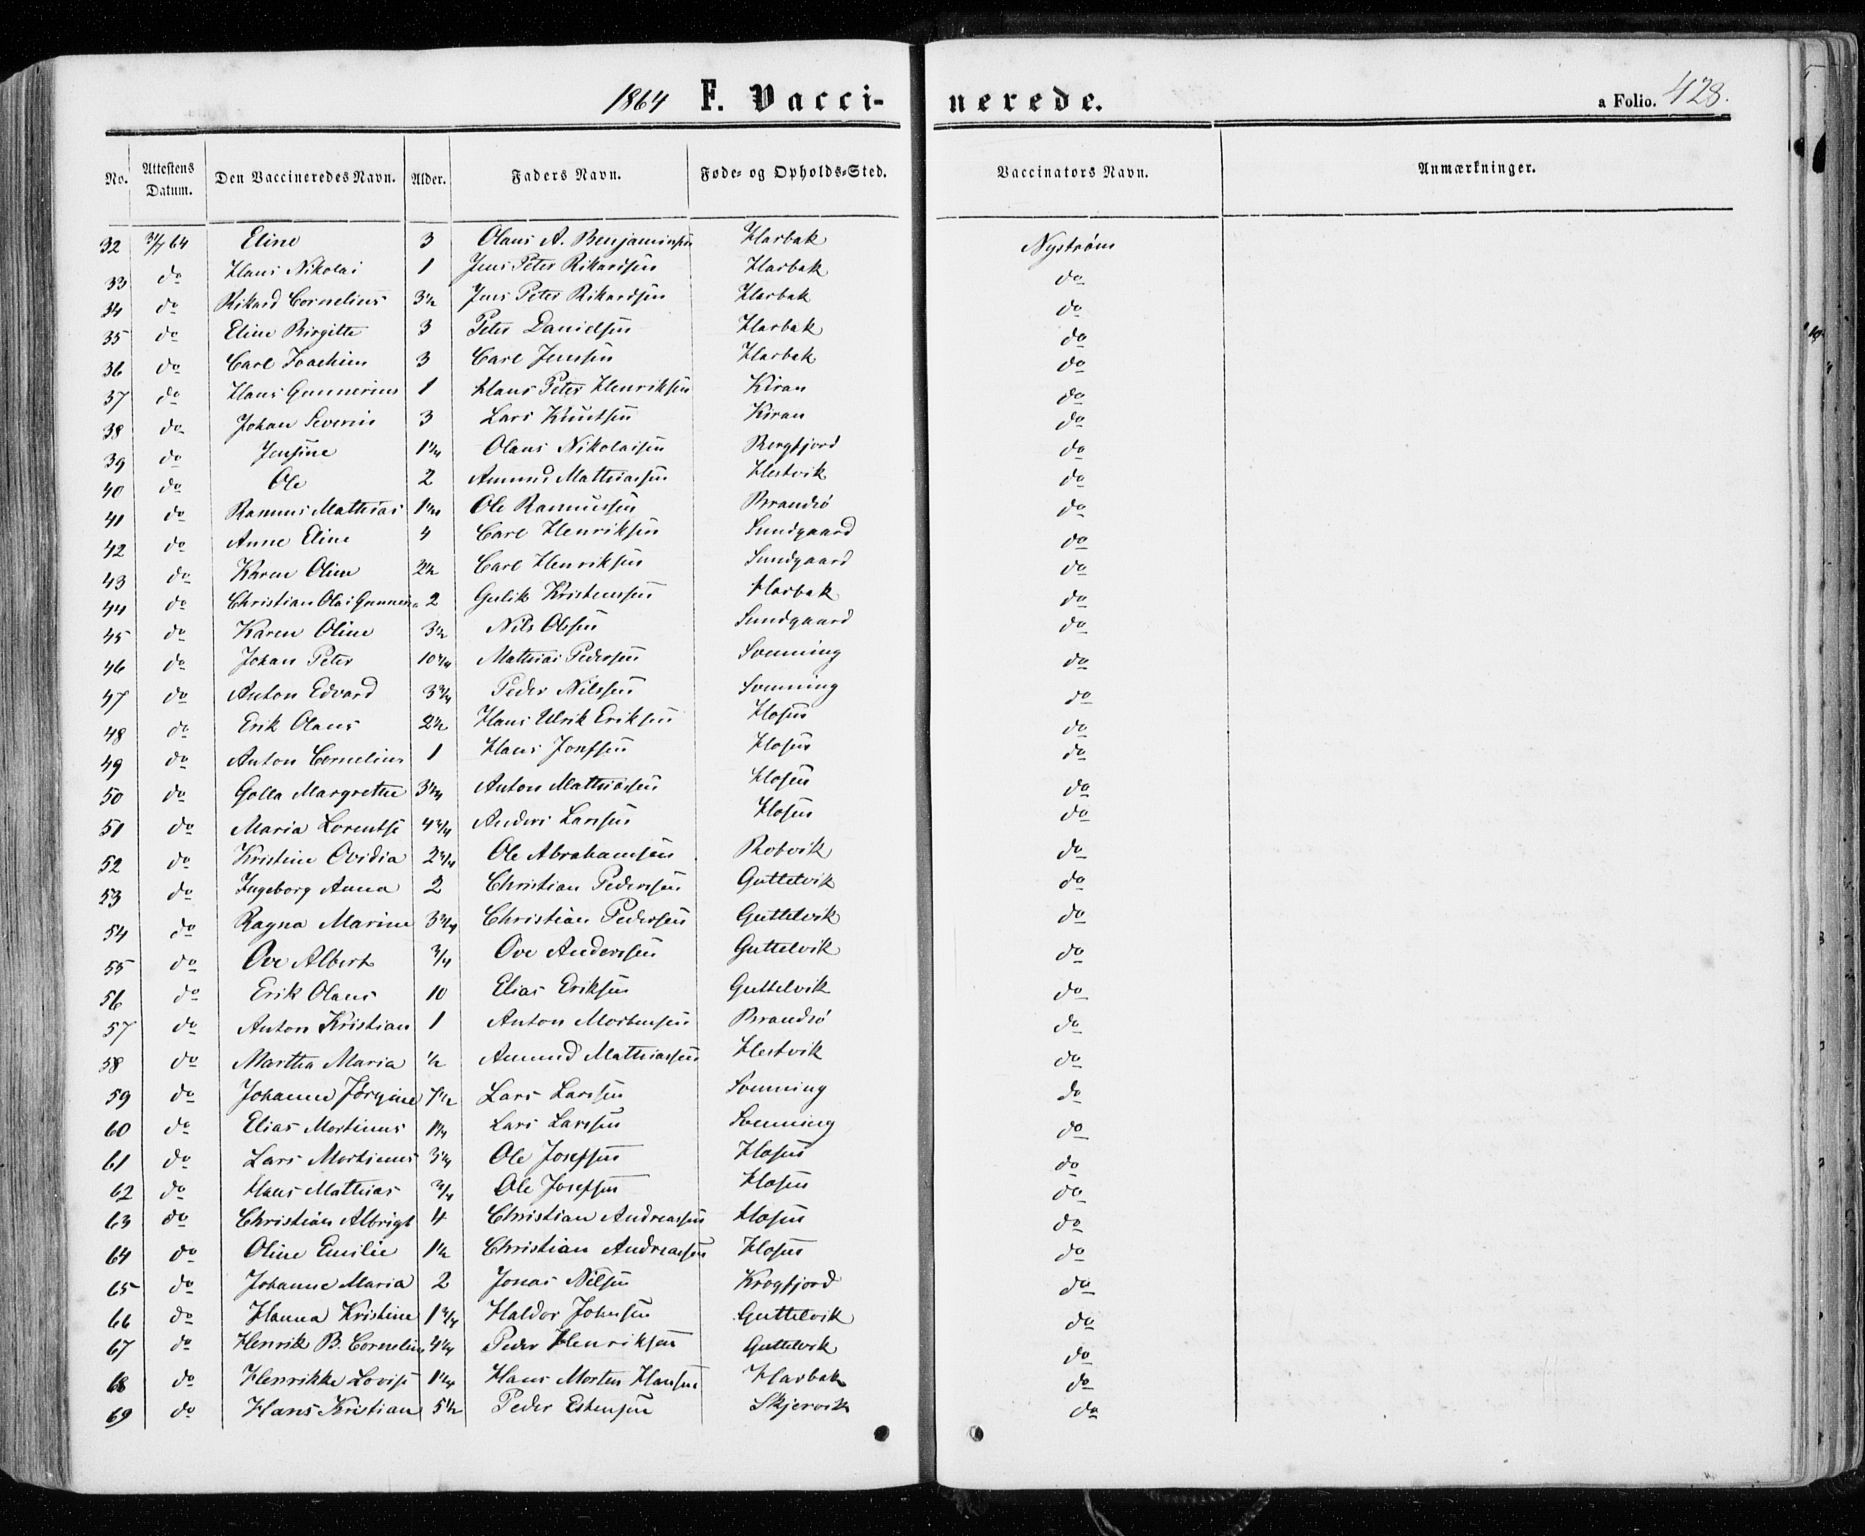 1864 F. Vaccinerede. a Folio. 428.
No. Attestens Datum. Den Vaccineredes Navn. Alder. Faders Navn. Føde- og Opholds-Sted. Vaccinators Navn. Anmærkninger.
32 31/7 64 Eline 3 Olaus A. Benjaminsen Harbak Nystrøm
33 do Hans Nikolai 1 Jens Peter Rikardsen Harbak do
34 do Rikard Cornelius 3 1/2 Jens Peter Rikardsen Harbak do
35 do Eline Birgitte 3 Peter Danielsen Harbak do
36 do Carl Joachim 3 Carl Jensen Harbak do
37 do Hans Gunnerius 1 Hans Peter Henriksen Kiran do
38 do Johan Severin 3 Lars Knutsen Kiran do
39 do Jensine 1 1/4 Olaus Nikolaisen Bergfjord do
40 do Ole 2 Amund Mathiassen Hestvik do
41 do Rasmus Mathias 1 Ole Rasmussen Brandsø do
42 do Anne Eline 4 Carl Henriksen Sundgaard do
43 do Karen Oline 2 1/2 Carl Henriksen Sundgaard do
44 do Christian Olai 2 Gulik Kristensen Harbak do
45 do Karen Oline 3 1/2 Nils Olsen Sundgaard do
46 do Johan Peter 10 3/4 Mathias Pedersen Svenning do
47 do Anton Edvard 3 3/4 Peder Nilssen Svenning do
48 do Erik Olaus 2 1/2 Hans Ulrik Eriksen Hosen do
49 do Anton Cornelius 1 Hans Josefsen Hosen do
50 do Golla Margrethe 3 1/4 Anton Mathiassen Hosen do
51 do Maria Lorentse 4 3/4 Anders Larssen Hosen do
52 do Kristine Ovidia 2 3/4 Ole Abrahamsen Botvik do
53 do Ingeborg Anna 2 Christian Pederssen Guttelvik do
54 do Ragna Marine 3 3/4 Christian Pedersen Guttelvik do
55 do Ove Albert 3/4 Ove Anderssen Guttelvik do
56 do Erik Olaus 10 Elias Eriksen Guttelvik do
57 do Anton Kristian 1 Anton Mortensen Brandsø do
58 do Martha Maria 1/2 Amund Mathiassen Hestvik do
59 do Johanne Jørgine 7 1/2 Lars Larssen Svenning do
60 do Elias Mortinus 1 1/4 Lars Larssen Svenning do
61 do Lars Mortinus 3 1/4 Ole Josefsen Hosen do
62 do Hans Mathias 3/4 Ole Josefsen Hosen do
63 do Christian Albrigt 4 Christian Andreassen Hosen do
64 do Oline Emilie 1 1/2 Christian Andreassen Hosen do
65 do Johanne Maria 2 Jonas Nilsen Krogfjord do
66 do Hanna Kristine 1 3/4 Haldor Johnsen Guttelvik do
67 do Henrik B. Cornelius 4 1/4 Peder Henriksen Guttelvik do
68 do Henrikke Lovise 1 1/4 Hans Morten Hansen Harbak do
69 do Hans Kristian 5 1/2 Peder Estensen Skjervik do